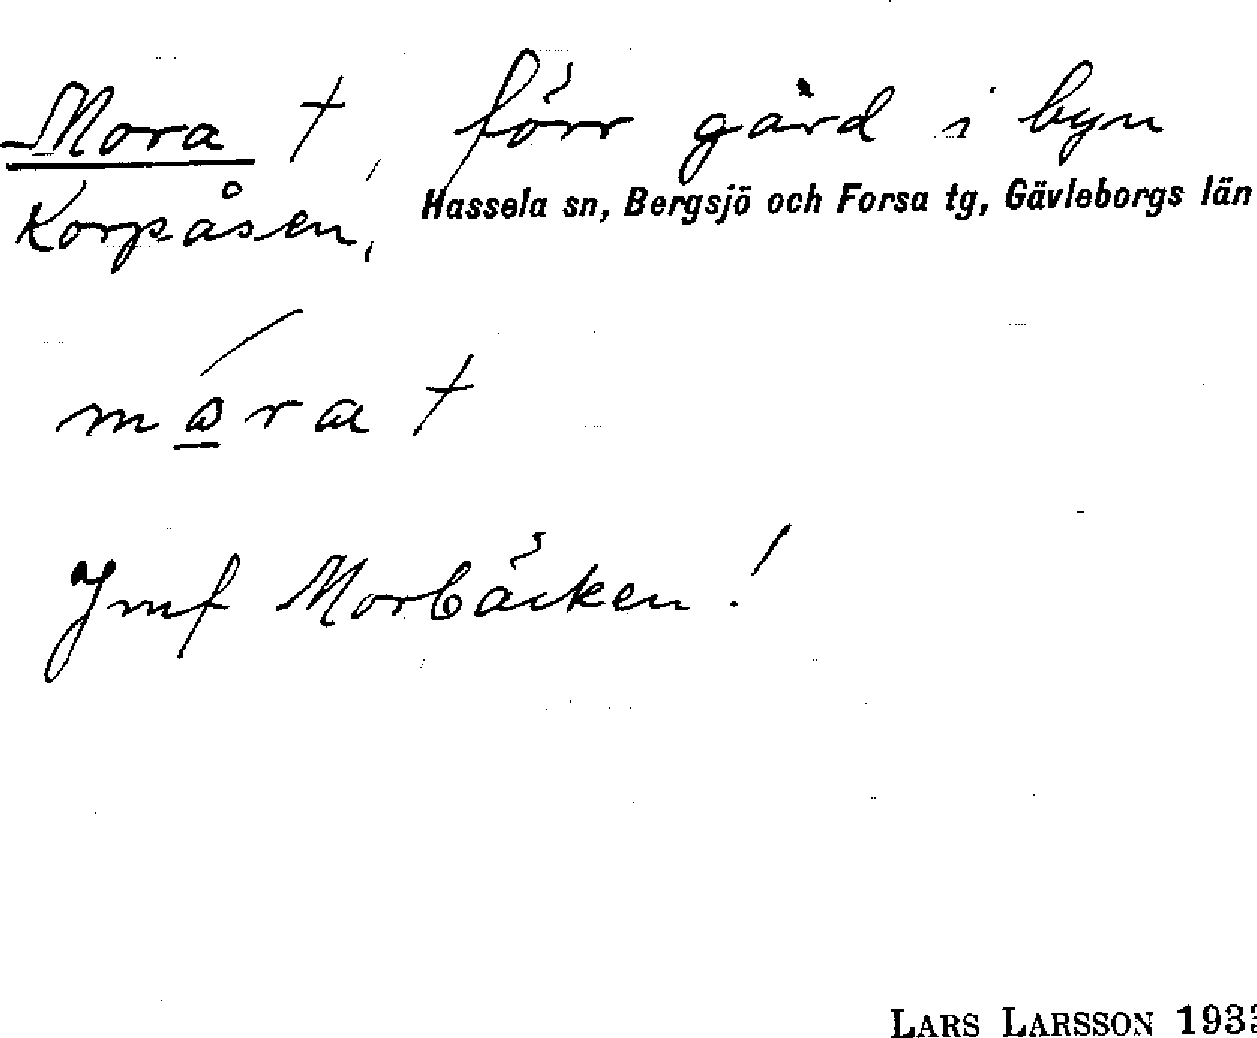 Mora †, förr gård i byn
Korpåsen, Hassela sn, Bergsjö och Forsa tg, Gävleborgs län
mo̲ra †
Jmf Morbäcken!
LARS LARSSON 193